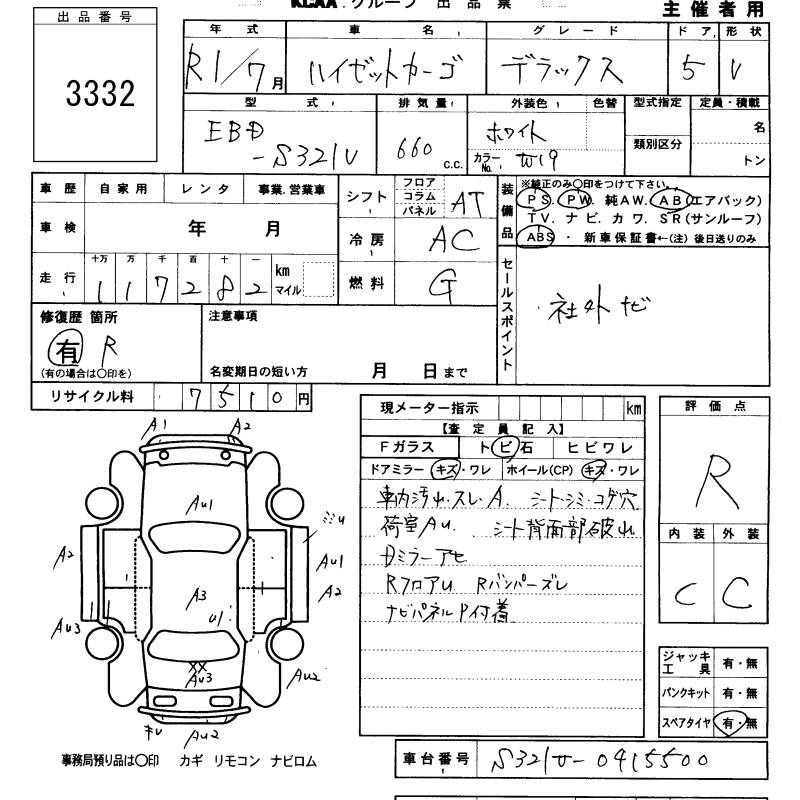 KCAA グループ 出品票
主催者用
出品番号
3332
年式 車名 グレード ドア 形状
R1/7月 ハイゼットカーゴ デラックス 5 V
型式 排気量 外装色 色替 型式指定 定員・積載
EBD-S321V 660c.c. ホワイト 名
カラーNo. W19 類別区分 トン
車歴 自家用 レンタ 事業.営業車
シフト フロア コラム パネル AT
装備品 ※純正のみ〇印をつけて下さい。
PS. PW. 純AW. AB(エアバック)
TV. ナビ. カワ. SR(サンルーフ)
ABS ・ 新車保証書←(注) 後日送りのみ
車検 年 月
冷房 AC
走行 十万 万 千 百 十 一
117282 km マイル
燃料 G
セールスポイント 社外ナビ
修復歴 箇所
有 R
(有の場合は〇印を)
注意事項
名変期日の短い方 月 日まで
リサイクル料 7510円
現メーター指示 km
【査定員記入】
Fガラス ト ビ 石 ヒビワレ
ドアミラー キズ・ワレ ホイール(CP) キズ・ワレ
車内汚れ.スレ.A. シートシミ.コゲ穴
荷室AU. シート背面部破れ
Dミラーアセ
RフロアU Rバンパーズレ
ナビパネルP付着
評価点
R
内装 外装
C C
ジャッキ工具 有・無
パンクキット 有・無
スペアタイヤ 有・無
A1 A2
AU1
A2 AU1
A2
A3
U1
AU3
XX
AU3 AU2
AU2
事務局預り品は〇印 カギ リモコン ナビロム
車台番号 S321V-0415500